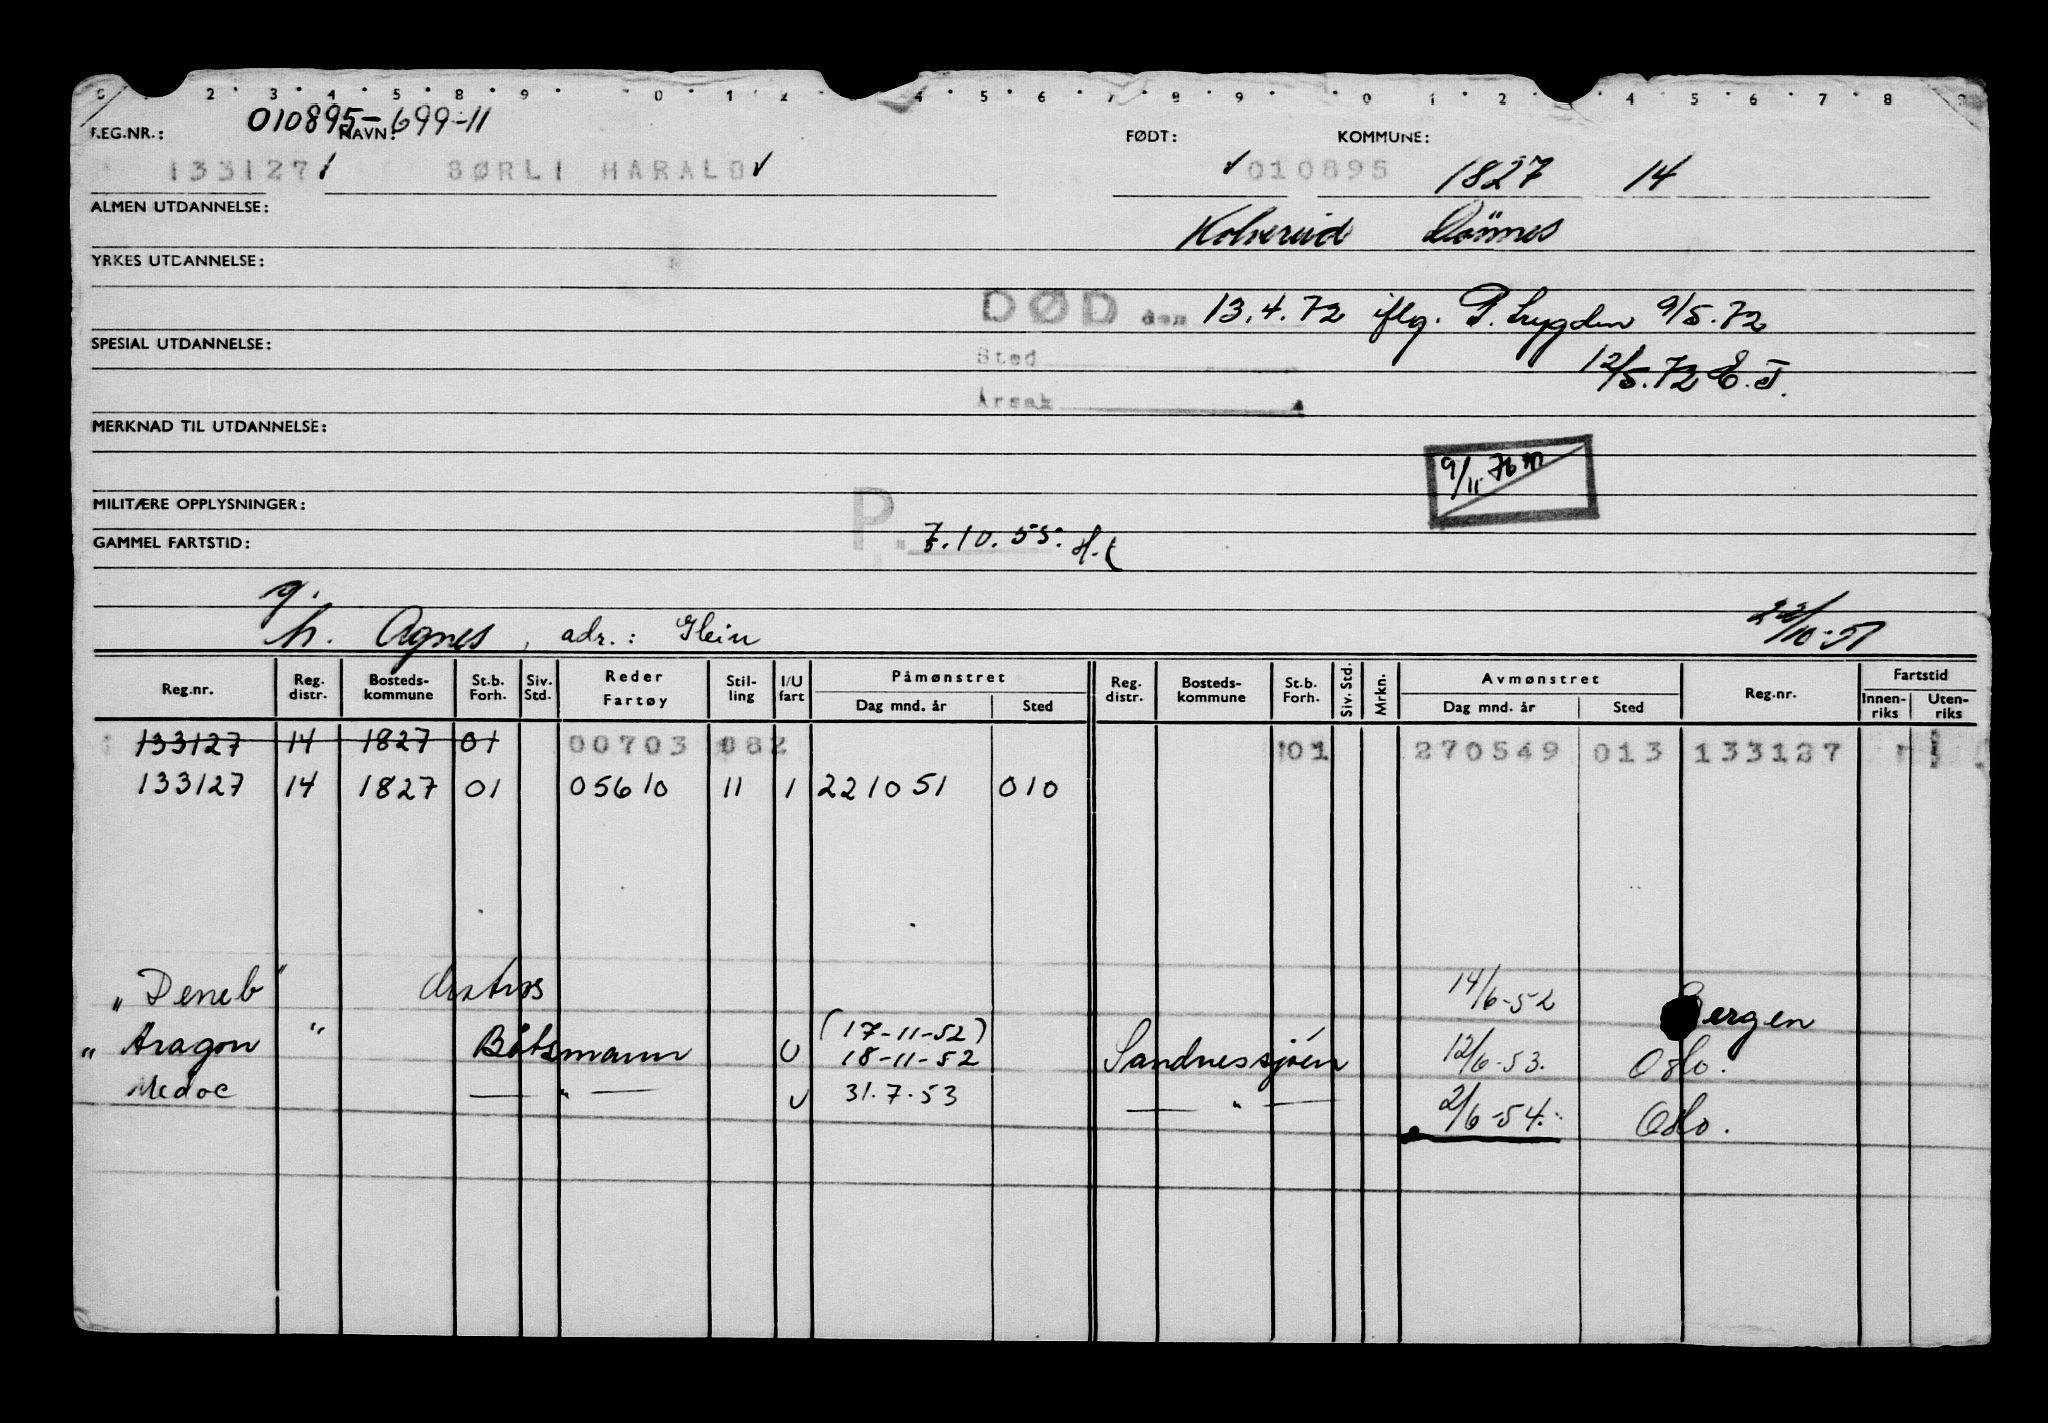 0 2 3 4 5 8 9 0 1 2 4 5 6 7 8 9 0 1 2 4 5 6 7 8 9
010895-699-11
REG.NR.: NAVN: FØDT: KOMMUNE:
133127 SØRLI HARALD 010895 1827 14
ALMEN UTDANNELSE:
Kolvereid Dönnes
YRKES UTDANNELSE:
DØD den 13.4.72 iflg. P. Trygden 9/5.72
SPESIAL UTDANNELSE:
Sted
12/5.72 E.T.
Årsak
MERKNAD TIL UTDANNELSE:
9/11 76 m
MILITÆRE OPPLYSNINGER:
P. 7.10.55. H.
GAMMEL FARTSTID:
g.
h. Agnes, adr.: Glein 22/10-51
Reg.nr. Reg. distr. Bosteds-kommune St.b. Forh. Siv. Std. Reder Fartøy Stil-ling I/U fart Påmønstret Dag mnd. år Sted Reg. distr. Bosteds-kommune St.b. Forh. Siv. Std. Mrkn. Avmønstret Dag mnd. år Sted Reg.nr. Fartstid Innen-riks Uten-riks
133127 14 1827 01 00703 082 01 270549 013 133127
133127 14 1827 01 05610 11 1 221051 010
„Deneb" 14/6-52 Bergen
(17-11-52)
„Aragon" Båtsmann U 18-11-52 Sandnessjøen 12/6-53. Oslo.
Medoc — " — U 31.7.53 — " — 2/6-54. Oslo.